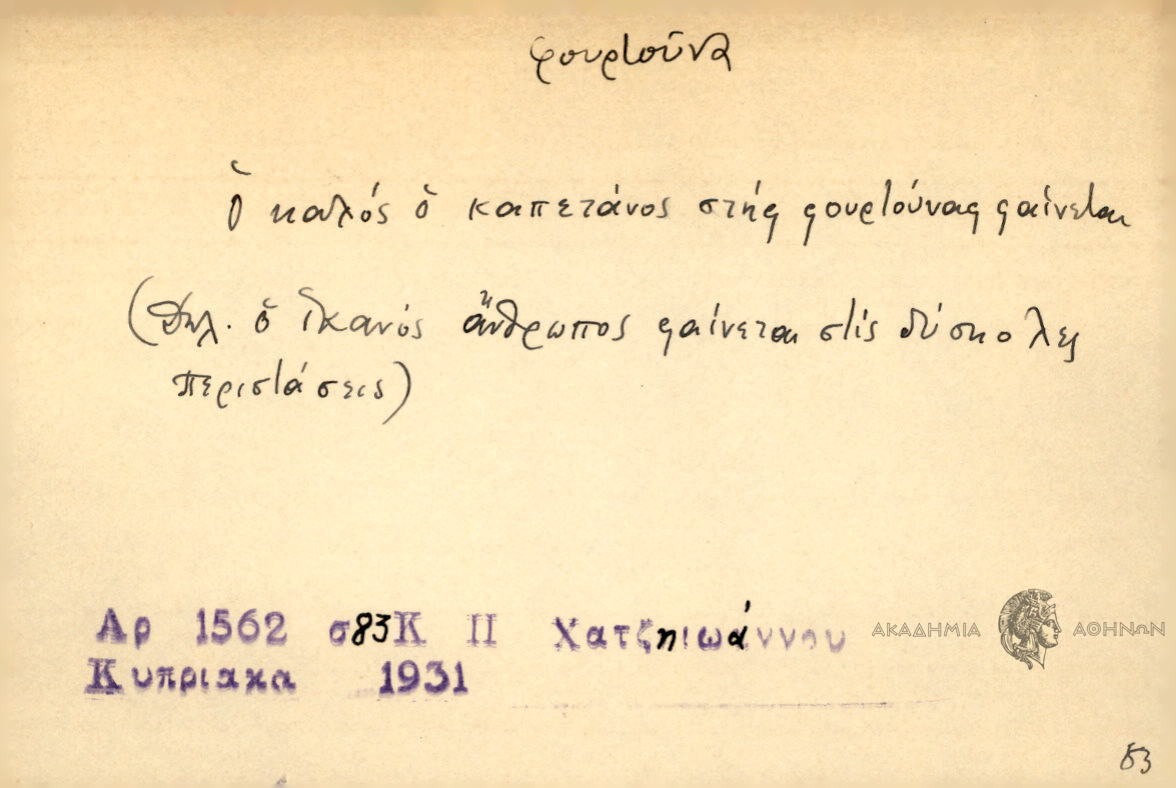 φουρτοῦνα
Ὁ καλός ὁ καπετάνος στής φουρτούνας φαίνεται
(Δηλ. ὁ ἱκανός ἄνθρωπος φαίνεται στίς δύσκολες
περιστάσεις)
Αρ 1562 σ83 Κ Π Χατζηιωάννου
Κυπριακα 1931
ΑΚΑΔΗΜΙΑ ΑΘΗΝΩΝ
83